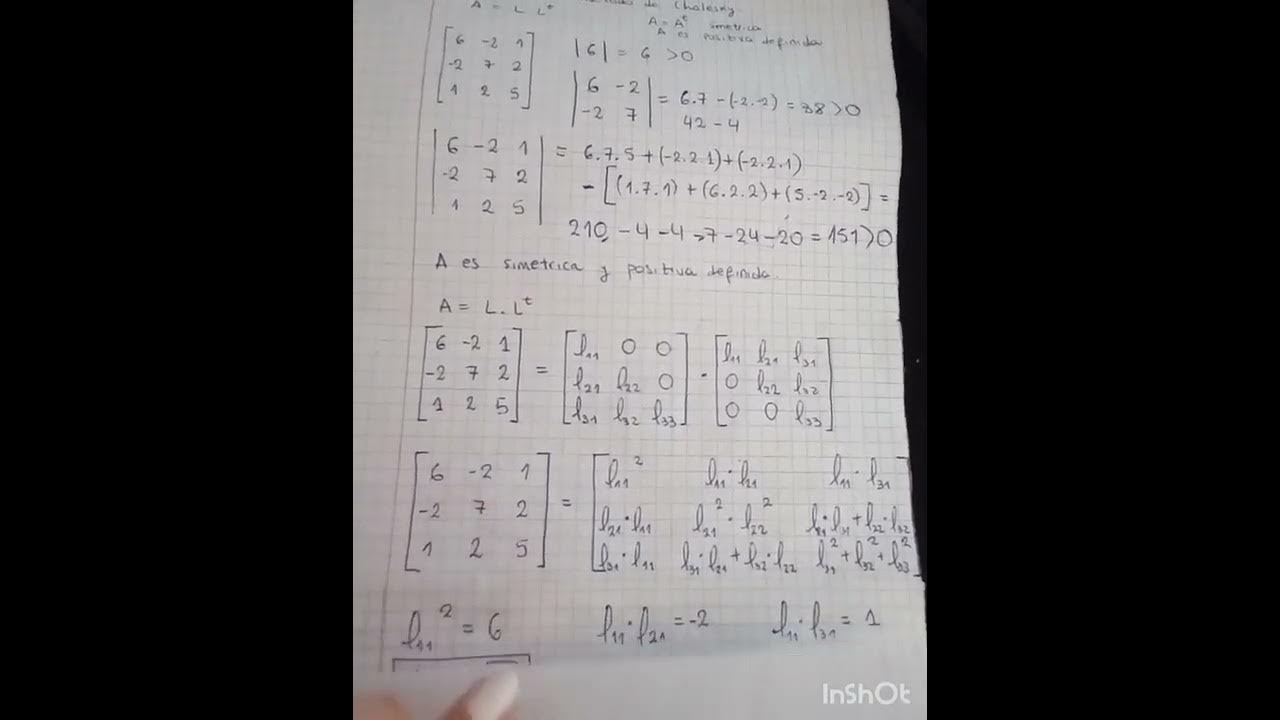 A = L L^t de Cholesky
A = A^t simetrica
A es positiva definida
[6 -2 1] |6| = 6 >0
[-2 7 2]
[1 2 5]
|6 -2| = 6.7 -(-2.-2) = 38 >0
|-2 7| 42 - 4
|6 -2 1| = 6.7.5 +(-2.2.1)+(-2.2.1)
|-2 7 2| - [(1.7.1) + (6.2.2) +(5.-2.-2)] =
|1 2 5|
210 - 4 - 4 -7 -24 -20 = 151 >0
A es simetrica y positiva definida.
A = L.L^t
[6 -2 1] = [l11 0 0] · [l11 l21 l31]
[-2 7 2] [l21 l22 0] [0 l22 l32]
[1 2 5] [l31 l32 l33] [0 0 l33]
[6 -2 1] = [l11^2 l11·l21 l11·l31]
[-2 7 2] [l21·l11 l21^2·l22^2 l21·l31+l22·l32]
[1 2 5] [l31·l11 l31·l21+l32·l22 l31^2+l32^2+l33^2]
l11^2 = 6 l11·l21 = -2 l11·l31 = 1
InShOt